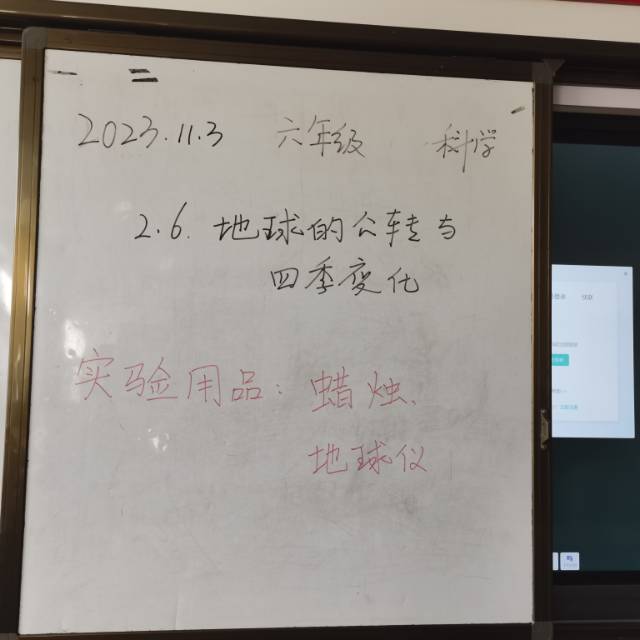 一 二
2023.11.3 六年级 科学
2.6. 地球的公转与
四季变化
实验用品：蜡烛、
地球仪